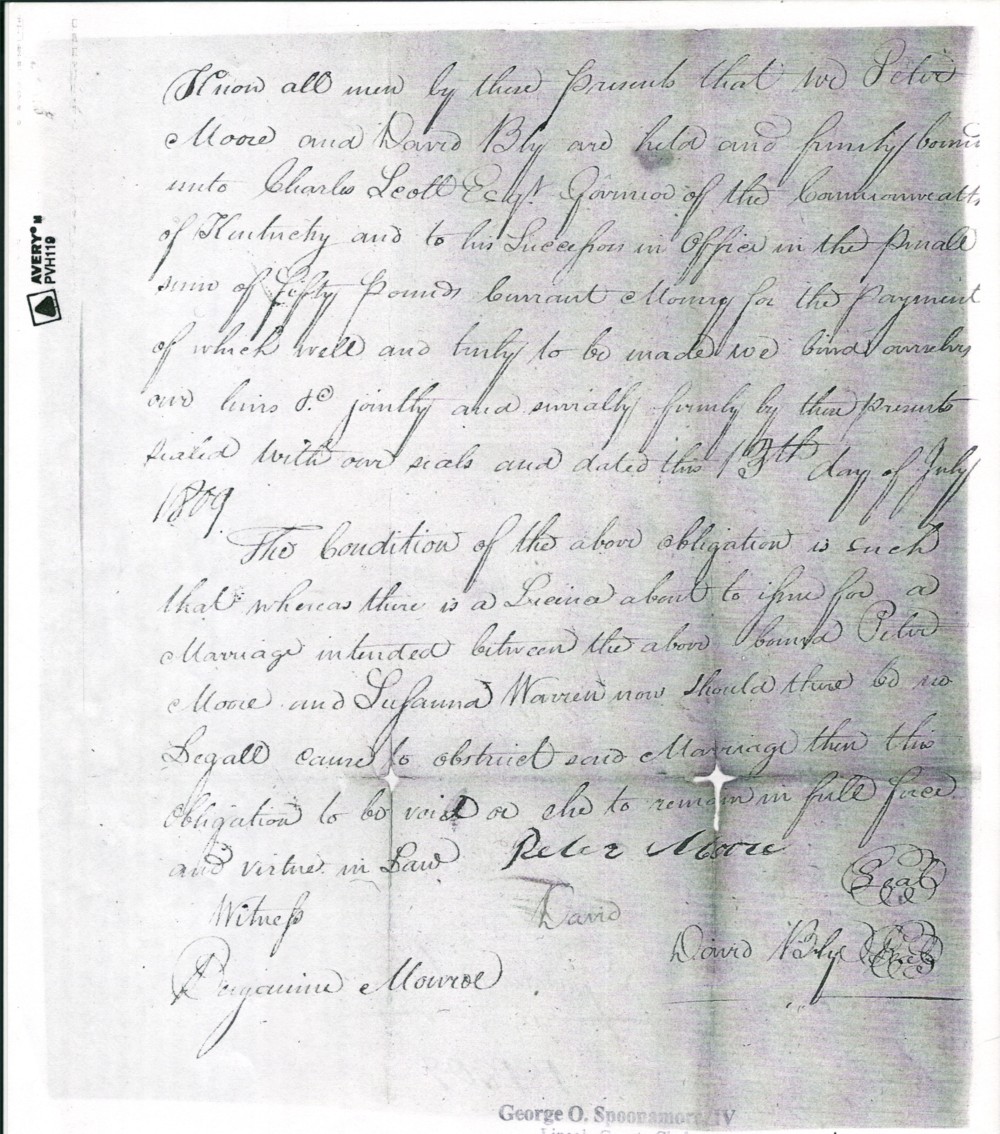 Know all men by these Presents that we Peter
Moore and David Bly are held and firmly bound
unto Charles Scott Esqr. Govrnor of the Commonwealth
of Kentucky and to his Successors in Office in the
sum of Fifty Pounds Currant Money for the Payment
of which well and truly to be made we bind ourselves
our heirs &c jointly and severally firmly by these presents
sealed with our seals and dated this 13th day of July
1809
The Condition of the above obligation is such
that whereas there is a Licence about to issue for a
Marriage intended between the above bound Peter
Moore and Susanna Warren now should there be no
Legall cause to obstruct said Marriage then this
obligation to be void or else to remain in full force
and virtue in Law
Peter Moore
Seal
Witness
David
David Bly Seal
Benjamine Monroe
AVERY
PVH119
George O. Spoonamore, IV